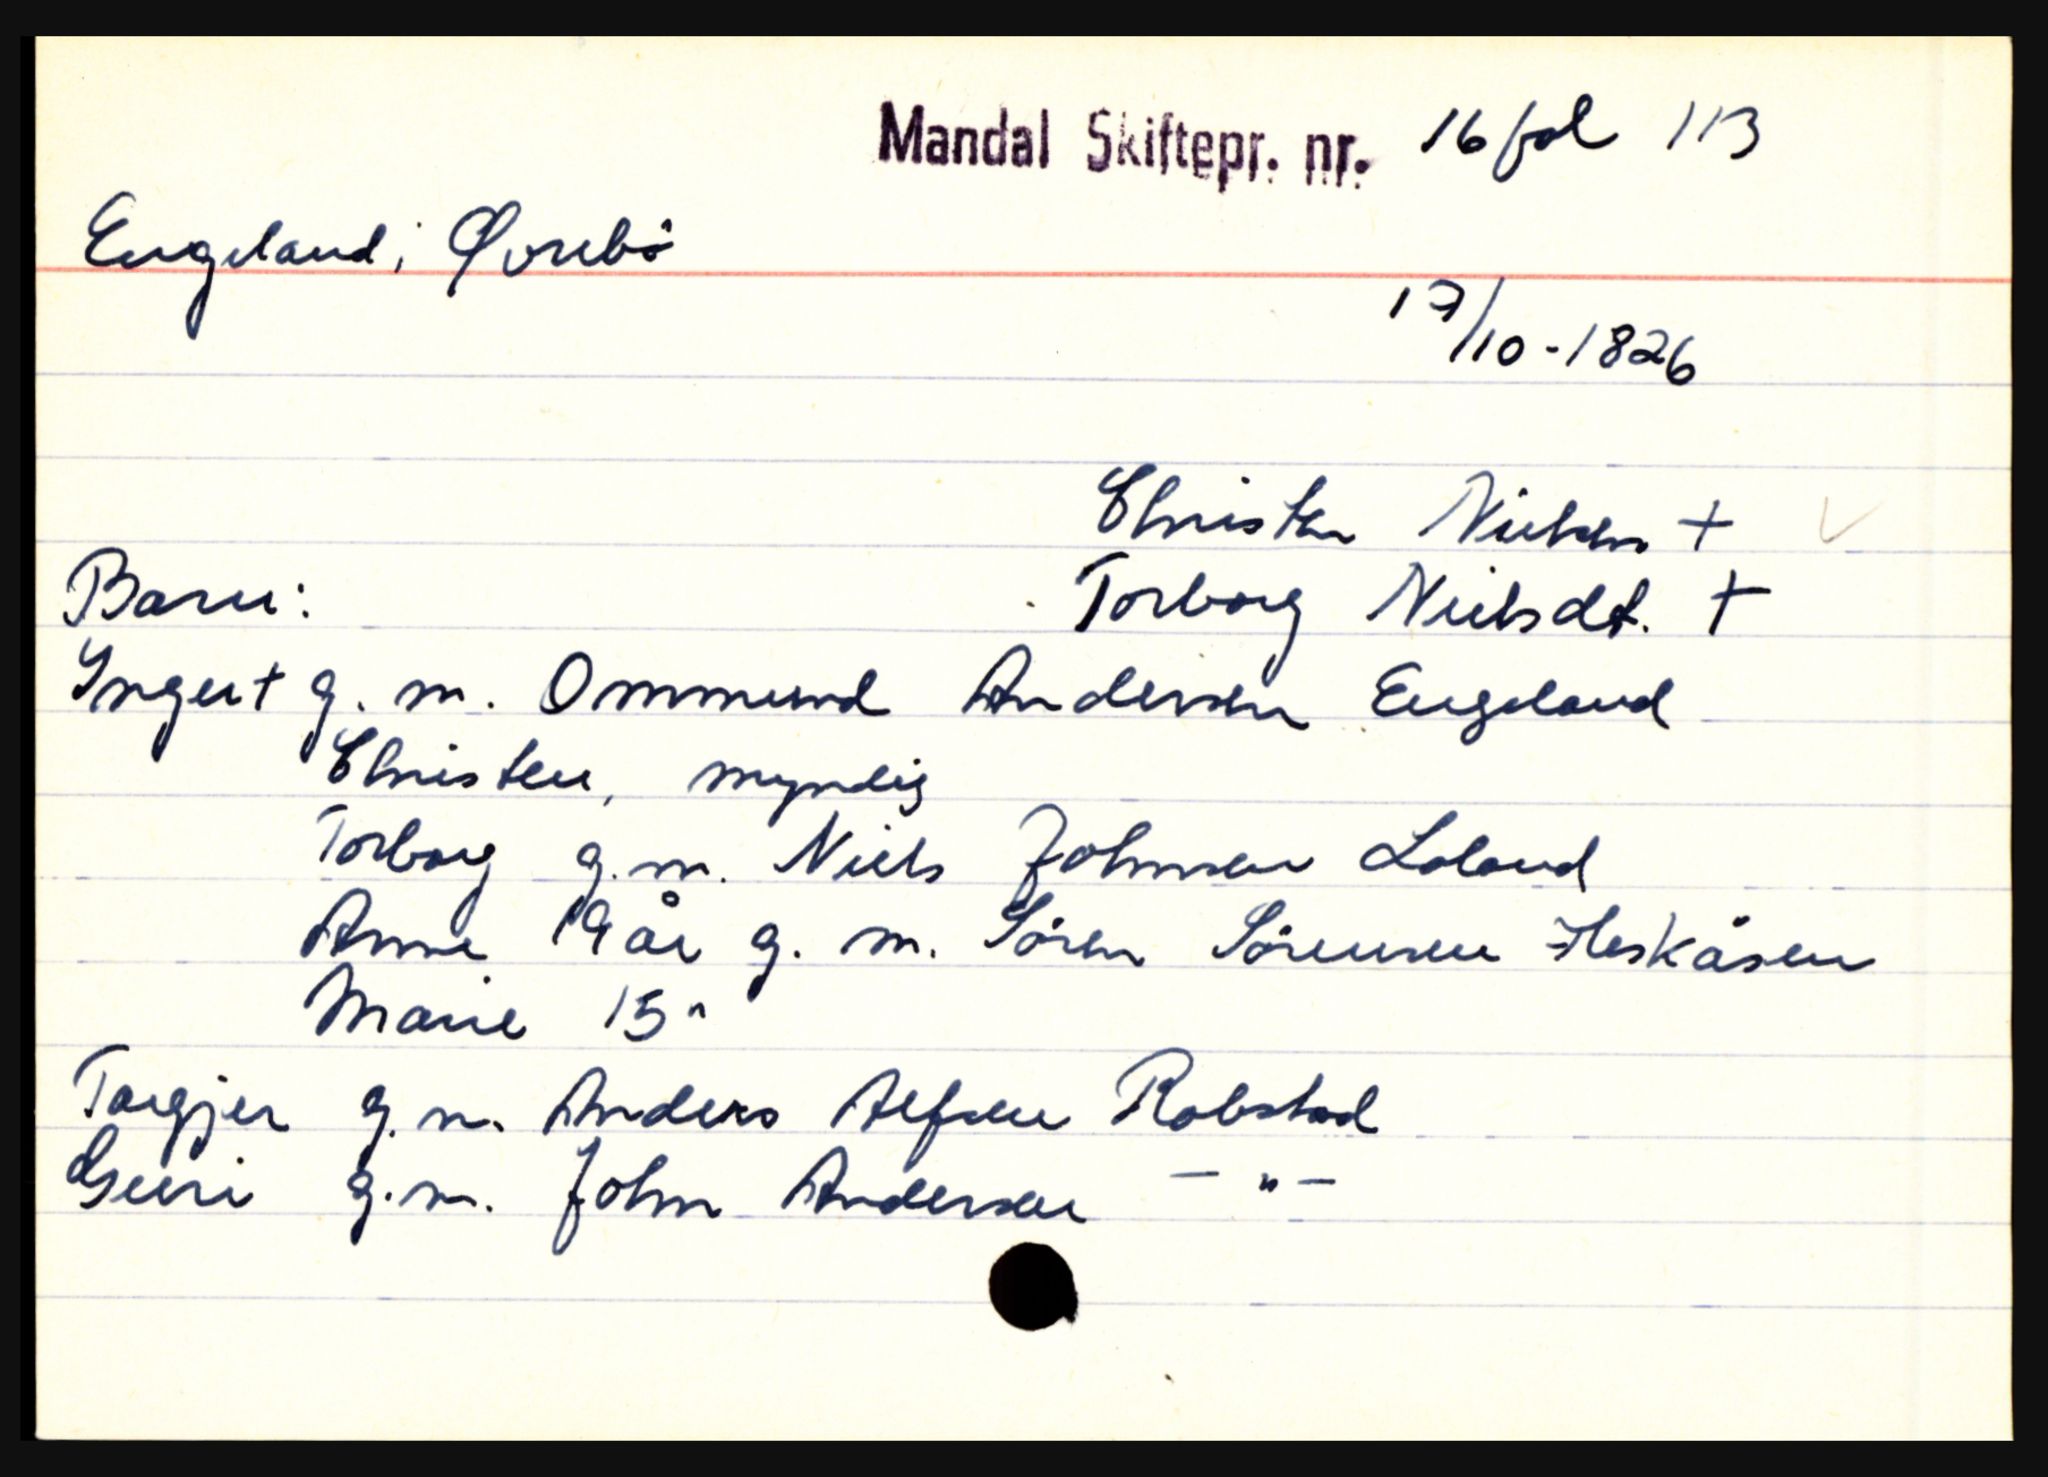 Mandal Skiftepr. nr. 16 fol 113
Engeland, Øvrebö
17/10-1826
Christen Nielsen +
Barn: Torborg Nielsdt. +
Inger + g. m. Ommund Andersen Engeland
Christen, myndig
Torborg g. m. Niels Johnsen Loland
Anne 19 år g. m. Sören Sörensen Heskåsen
Marie 15 "
Targjer g. m. Anders Alfsen Robstad
Guri g. m. John Andersen - " -